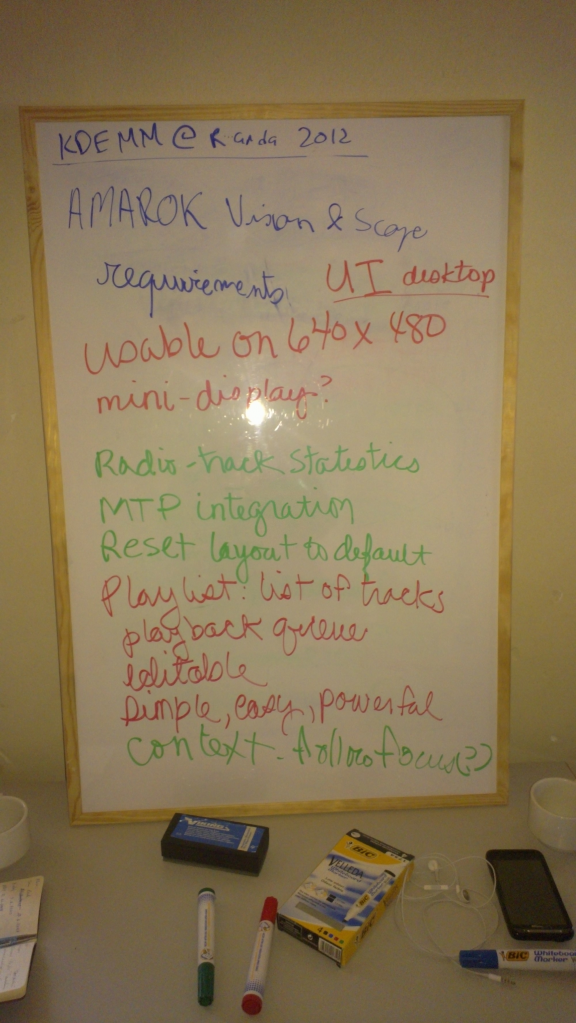 KDE MM @ Randa 2012
AMAROK Vision & Scope
requirements UI desktop
usable on 640 x 480
mini-display?
Radio-track statistics
MTP integration
Reset layout to default
Playlist: list of tracks
playback queue
editable
Simple, easy, powerful
context - follow focus(?)
BIC
VELLEDA
BIC Whiteboard
Marker